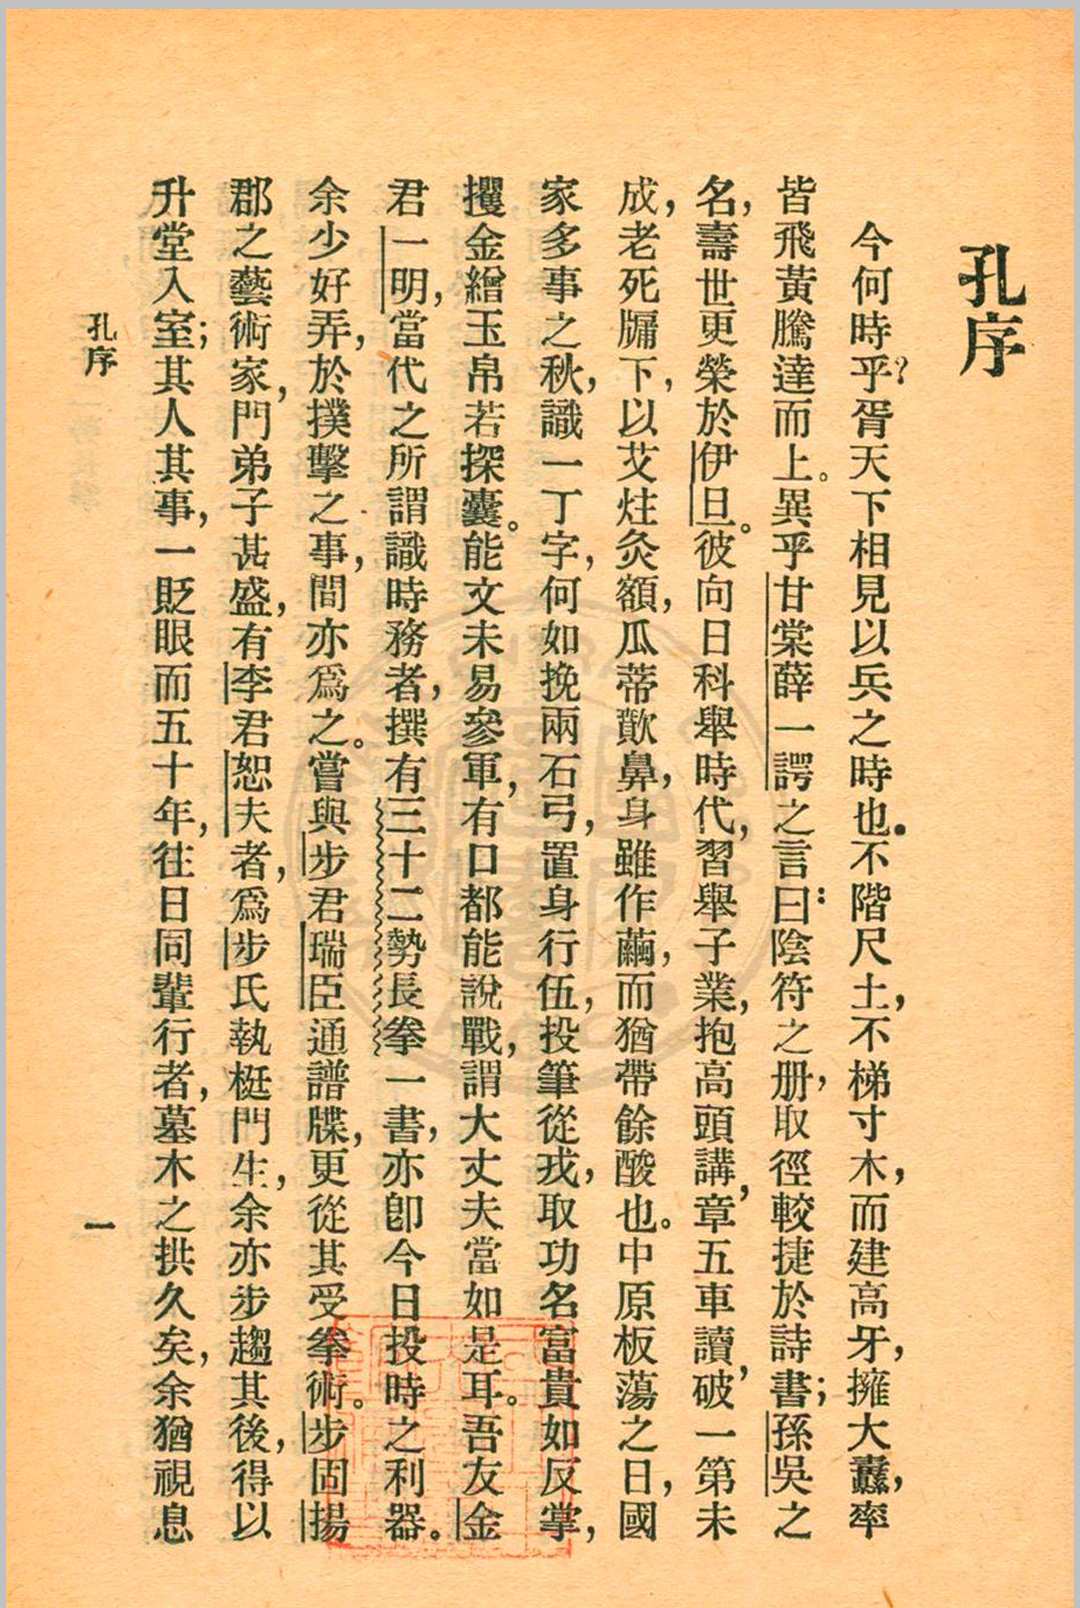 孔序
今何時乎？胥天下相見以兵之時也。不階尺土，不梯寸木，而建高牙，擁大纛，率
皆飛黃騰達而上。異乎甘棠薛一諤之言曰：陰符之册，取徑較捷於詩書；孫吳之
名，壽世更榮於伊旦。彼向日科舉時代，習舉子業，抱高頭講章，五車讀破，一第未
成，老死牖下，以艾炷灸額，瓜蒂歕鼻，身雖作繭，而猶帶餘酸也。中原板蕩之日，國
家多事之秋，識一丁字，何如挽兩石弓，置身行伍，投筆從戎，取功名富貴如反掌，
攫金繒玉帛若探囊。能文未易參軍，有口都能說戰，謂大丈夫當如是耳。吾友金
君一明，當代之所謂識時務者，撰有三十二勢長拳一書，亦卽今日投時之利器。
余少好弄，於撲擊之事，間亦爲之。嘗與步君瑞臣通譜牒，更從其受拳術。步固揚
郡之藝術家，門弟子甚盛，有李君恕夫者，爲步氏執梃門生，余亦步趨其後，得以
升堂入室；其人其事，一眨眼而五十年，往日同輩行者，墓木之拱久矣，余猶視息
孔序
一